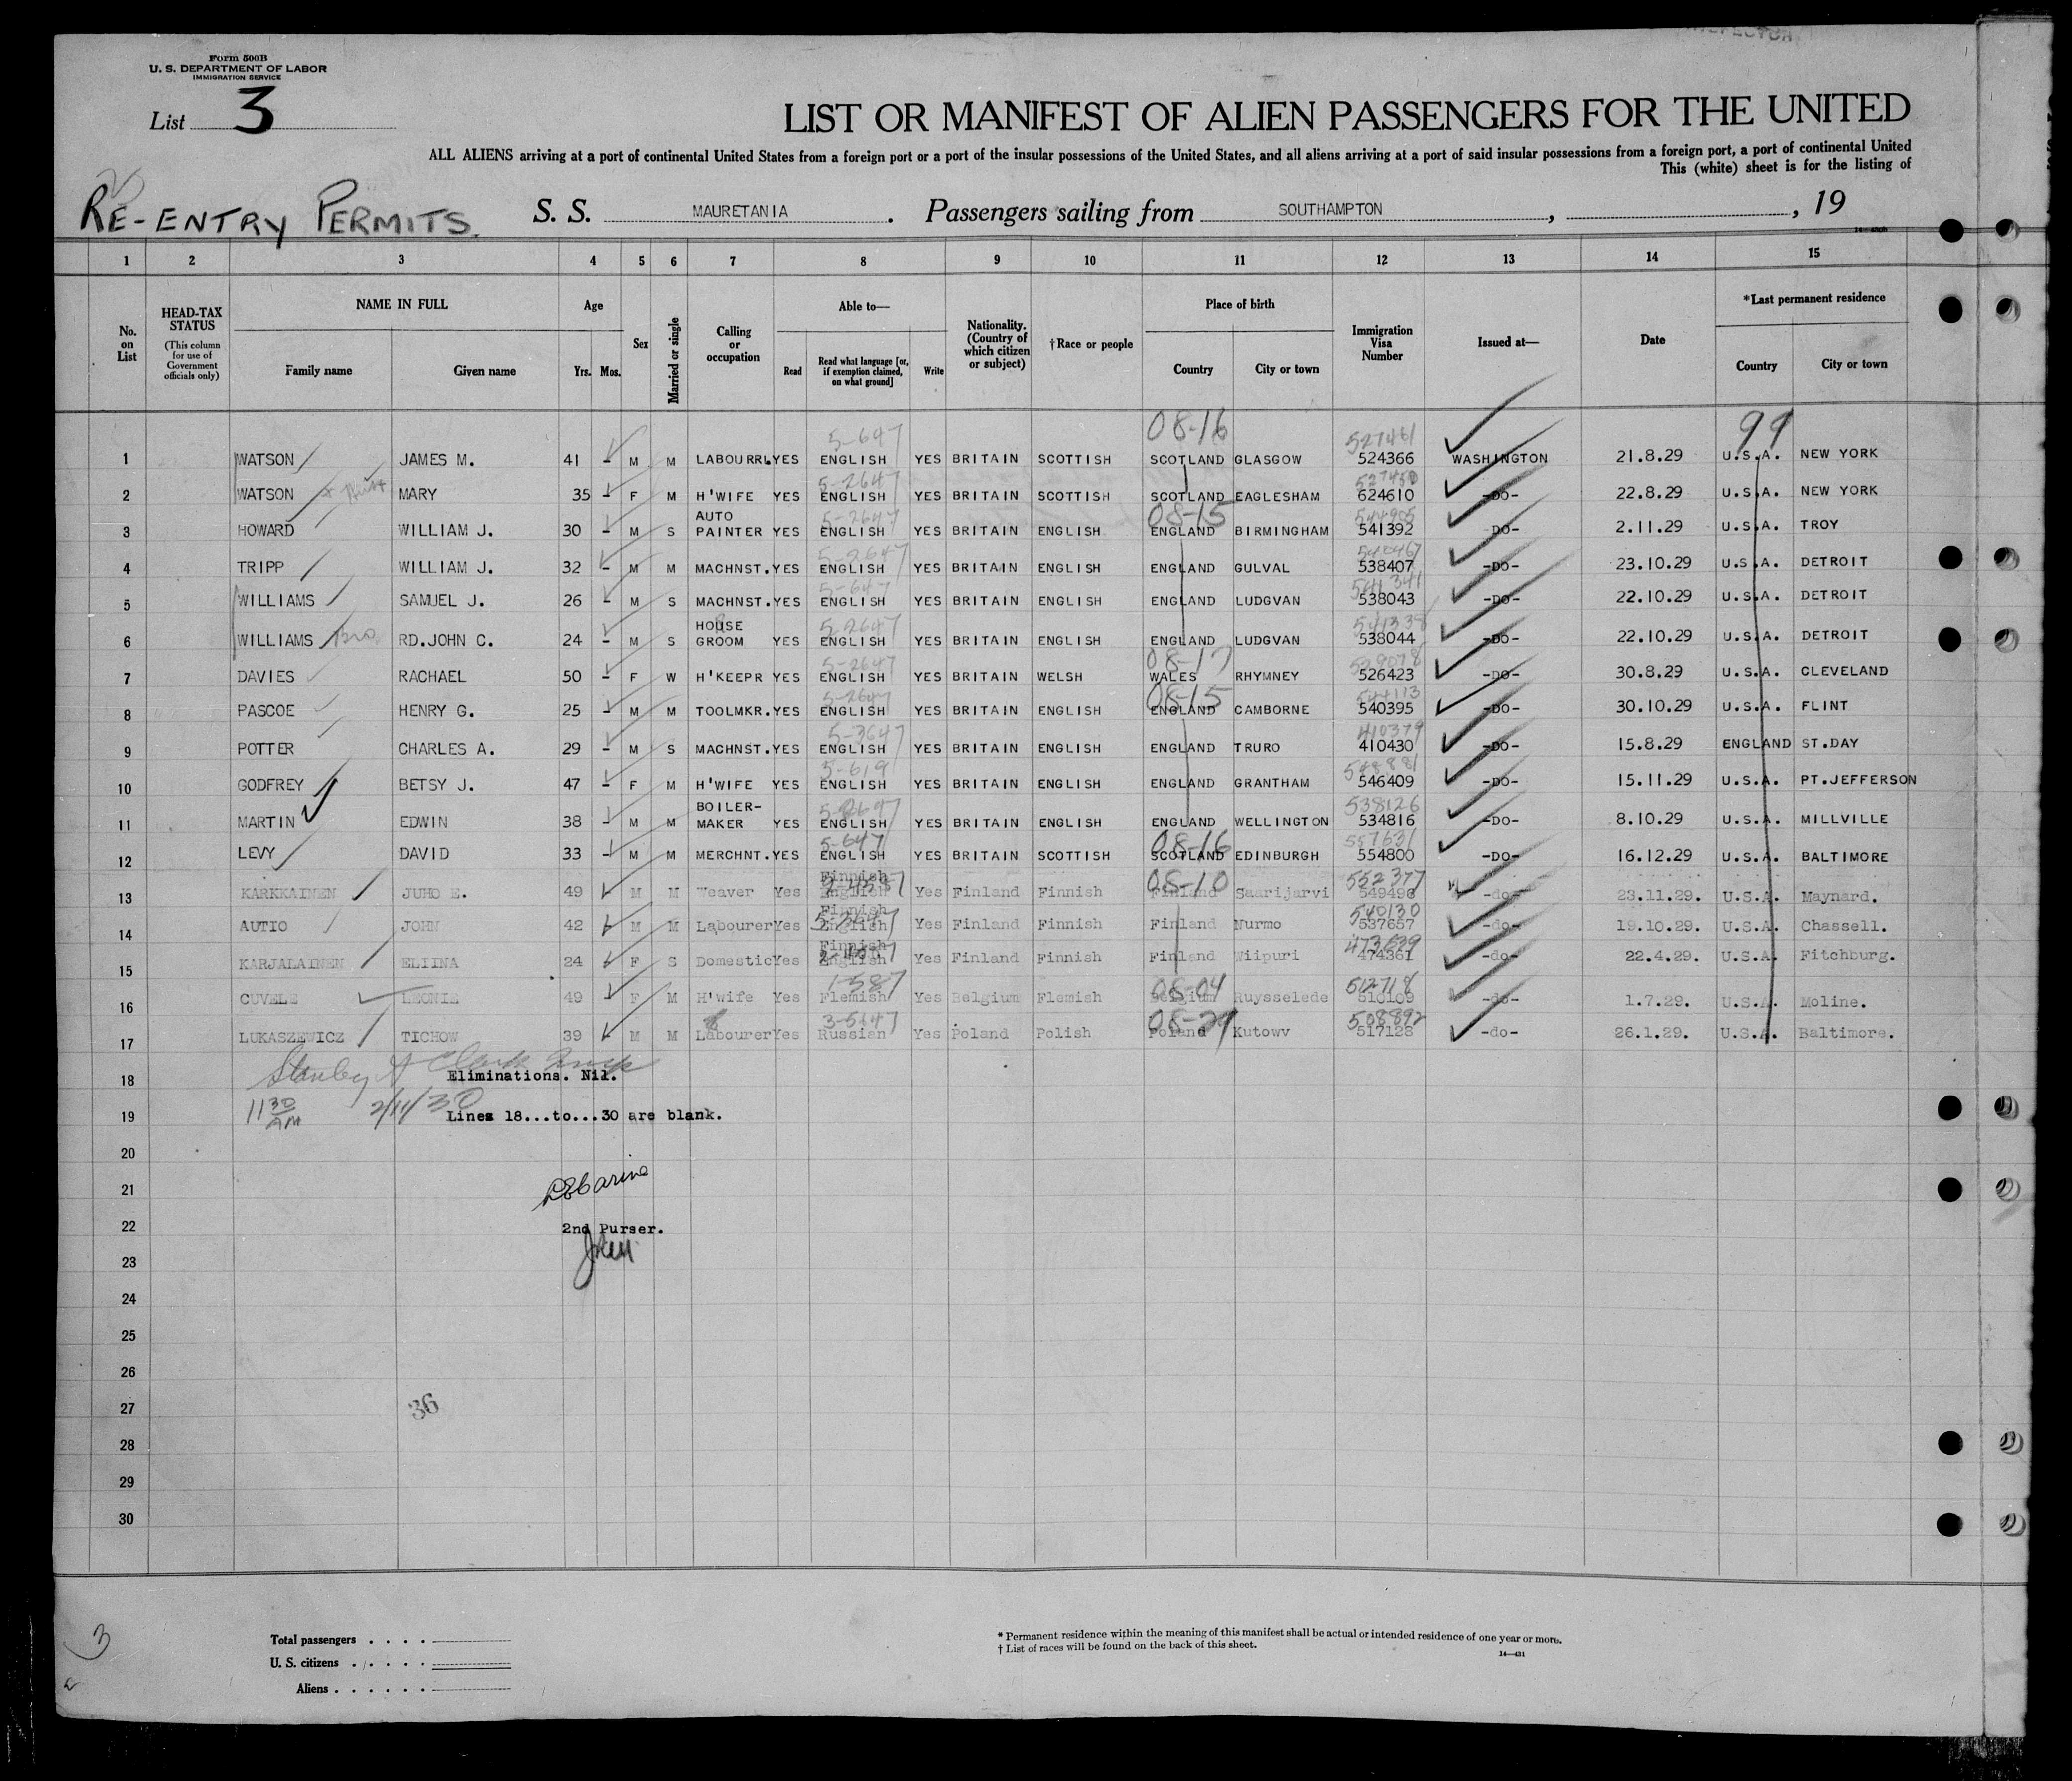 Form 500B
U. S. DEPARTMENT OF LABOR
IMMIGRATION SERVICE
List 3
LIST OR MANIFEST OF ALIEN PASSENGERS FOR THE UNITED
ALL ALIENS arriving at a port of continental United States from a foreign port or a port of the insular possessions of the United States, and all aliens arriving at a port of said insular possessions from a foreign port, a port of continental United
This (white) sheet is for the listing of
RE-ENTRY PERMITS. S. S. MAURETANIA . Passengers sailing from SOUTHAMPTON , , 19
1 2 3 4 5 6 7 8 9 10 11 12 13 14 15
No. on List HEAD-TAX STATUS (This column for use of Government officials only) NAME IN FULL Family name Given name Age Yrs. Mos. Sex Married or single Calling or occupation Able to— Read Read what language [or, if exemption claimed, on what ground] Write Nationality. (Country of which citizen or subject) †Race or people Place of birth Country City or town Immigration Visa Number Issued at— Date *Last permanent residence Country City or town
08-16 99
5-647 527461
1 WATSON JAMES M. 41 - M M LABOURR. YES ENGLISH YES BRITAIN SCOTTISH SCOTLAND GLASGOW 524366 WASHINGTON 21.8.29 U.S.A. NEW YORK
5-2647
2 WATSON MARY 35 - F M H'WIFE YES ENGLISH YES BRITAIN SCOTTISH SCOTLAND EAGLESHAM 624610 -DO- 22.8.29 U.S.A. NEW YORK
5-2647 08-15
3 HOWARD WILLIAM J. 30 - M S AUTO PAINTER YES ENGLISH YES BRITAIN ENGLISH ENGLAND BIRMINGHAM 541392 -DO- 2.11.29 U.S.A. TROY
5-2647
4 TRIPP WILLIAM J. 32 - M M MACHNST. YES ENGLISH YES BRITAIN ENGLISH ENGLAND GULVAL 538407 -DO- 23.10.29 U.S.A. DETROIT
5-647 541341
5 WILLIAMS SAMUEL J. 26 - M S MACHNST. YES ENGLISH YES BRITAIN ENGLISH ENGLAND LUDGVAN 538043 -DO- 22.10.29 U.S.A. DETROIT
5-2647 541338
6 WILLIAMS Bro RD.JOHN C. 24 - M S HOUSE GROOM YES ENGLISH YES BRITAIN ENGLISH ENGLAND LUDGVAN 538044 -DO- 22.10.29 U.S.A. DETROIT
5-2647 08-17 529078
7 DAVIES RACHAEL 50 - F W H'KEEPR YES ENGLISH YES BRITAIN WELSH WALES RHYMNEY 526423 -DO- 30.8.29 U.S.A. CLEVELAND
5-2647 08-15 544113
8 PASCOE HENRY G. 25 - M M TOOLMKR. YES ENGLISH YES BRITAIN ENGLISH ENGLAND CAMBORNE 540395 -DO- 30.10.29 U.S.A. FLINT
5-3647 410379
9 POTTER CHARLES A. 29 - M S MACHNST. YES ENGLISH YES BRITAIN ENGLISH ENGLAND TRURO 410430 -DO- 15.8.29 ENGLAND ST.DAY
5-619 548881
10 GODFREY BETSY J. 47 - F M H'WIFE YES ENGLISH YES BRITAIN ENGLISH ENGLAND GRANTHAM 546409 -DO- 15.11.29 U.S.A. PT.JEFFERSON
538126
11 MARTIN EDWIN 38 - M M BOILER-MAKER YES ENGLISH YES BRITAIN ENGLISH ENGLAND WELLINGTON 534816 -DO- 8.10.29 U.S.A. MILLVILLE
5-647 08-16 557631
12 LEVY DAVID 33 - M M MERCHNT. YES ENGLISH YES BRITAIN SCOTTISH SCOTLAND EDINBURGH 554800 -DO- 16.12.29 U.S.A. BALTIMORE
Finnish 08-10 552377
13 KARKKAINEN JUHO E. 49 M M Weaver Yes English Yes Finland Finnish Finland Saarijarvi 549496 -do- 23.11.29. U.S.A. Maynard.
Finnish 5-2647 540130
14 AUTIO JOHN 42 M M Labourer Yes English Yes Finland Finnish Finland Nurmo 537657 -do- 19.10.29. U.S.A. Chassell.
Finnish 473639
15 KARJALAINEN ELIINA 24 F S Domestic Yes English Yes Finland Finnish Finland Wiipuri 474361 -do- 22.4.29. U.S.A. Fitchburg.
1-587 08-04 512718
16 CUVELE LEONIE 49 F M H'wife Yes Flemish Yes Belgium Flemish Belgium Ruysselede 510109 -do- 1.7.29. U.S.A. Moline.
3-5647 08-29 508892
17 LUKASZEWICZ TICHOW 39 M M Labourer Yes Russian Yes Poland Polish Poland Kutowv 517128 -do- 26.1.29. U.S.A. Baltimore.
Stanley A Clark
18 Eliminations. Nil.
11 30 AM 2/11/30
19 Lines 18...to...30 are blank.
20
21
22 2nd Purser.
23
24
25
26
27 36
28
29
30
3
Total passengers . . . .
U. S. citizens . . . . .
Aliens . . . . . .
* Permanent residence within the meaning of this manifest shall be actual or intended residence of one year or more.
† List of races will be found on the back of this sheet.
14—431